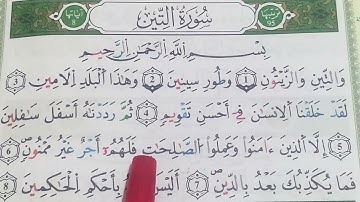 ترتيبها 95 سُورَةُ التِّينِ آياتها 8
بِسْمِ اللَّهِ الرَّحْمَٰنِ الرَّحِيمِ
وَالتِّينِ وَالزَّيْتُونِ ① وَطُورِ سِينِينَ ② وَهَٰذَا الْبَلَدِ الْأَمِينِ ③
لَقَدْ خَلَقْنَا الْإِنسَٰنَ فِي أَحْسَنِ تَقْوِيمٍ ④ ثُمَّ رَدَدْنَٰهُ أَسْفَلَ سَٰفِلِينَ
⑤ إِلَّا الَّذِينَ ءَامَنُوا وَعَمِلُوا الصَّٰلِحَٰتِ فَلَهُمْ أَجْرٌ غَيْرُ مَمْنُونٍ ⑥
فَمَا يُكَذِّبُكَ بَعْدُ بِالدِّينِ ⑦ أَلَيْسَ اللَّهُ بِأَحْكَمِ الْحَٰكِمِينَ ⑧